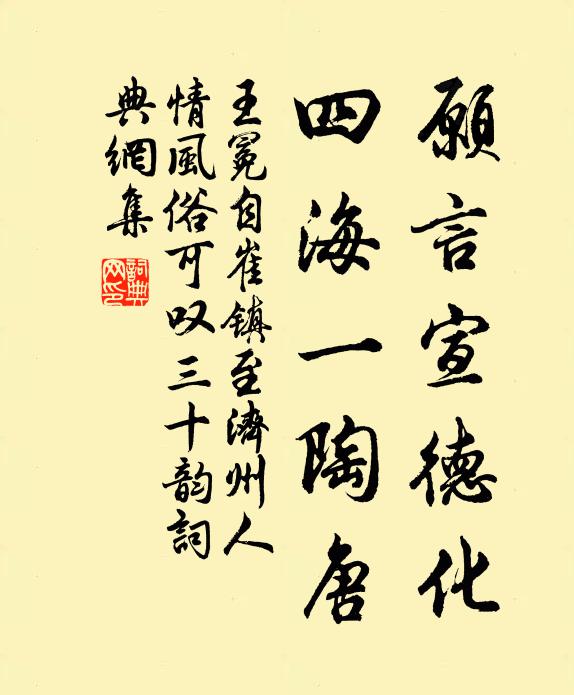 願言宣德化
四海一陶唐
王冕自崔鎮至濟州人
情風俗可叹三十韵詞
典網集
詞典网印